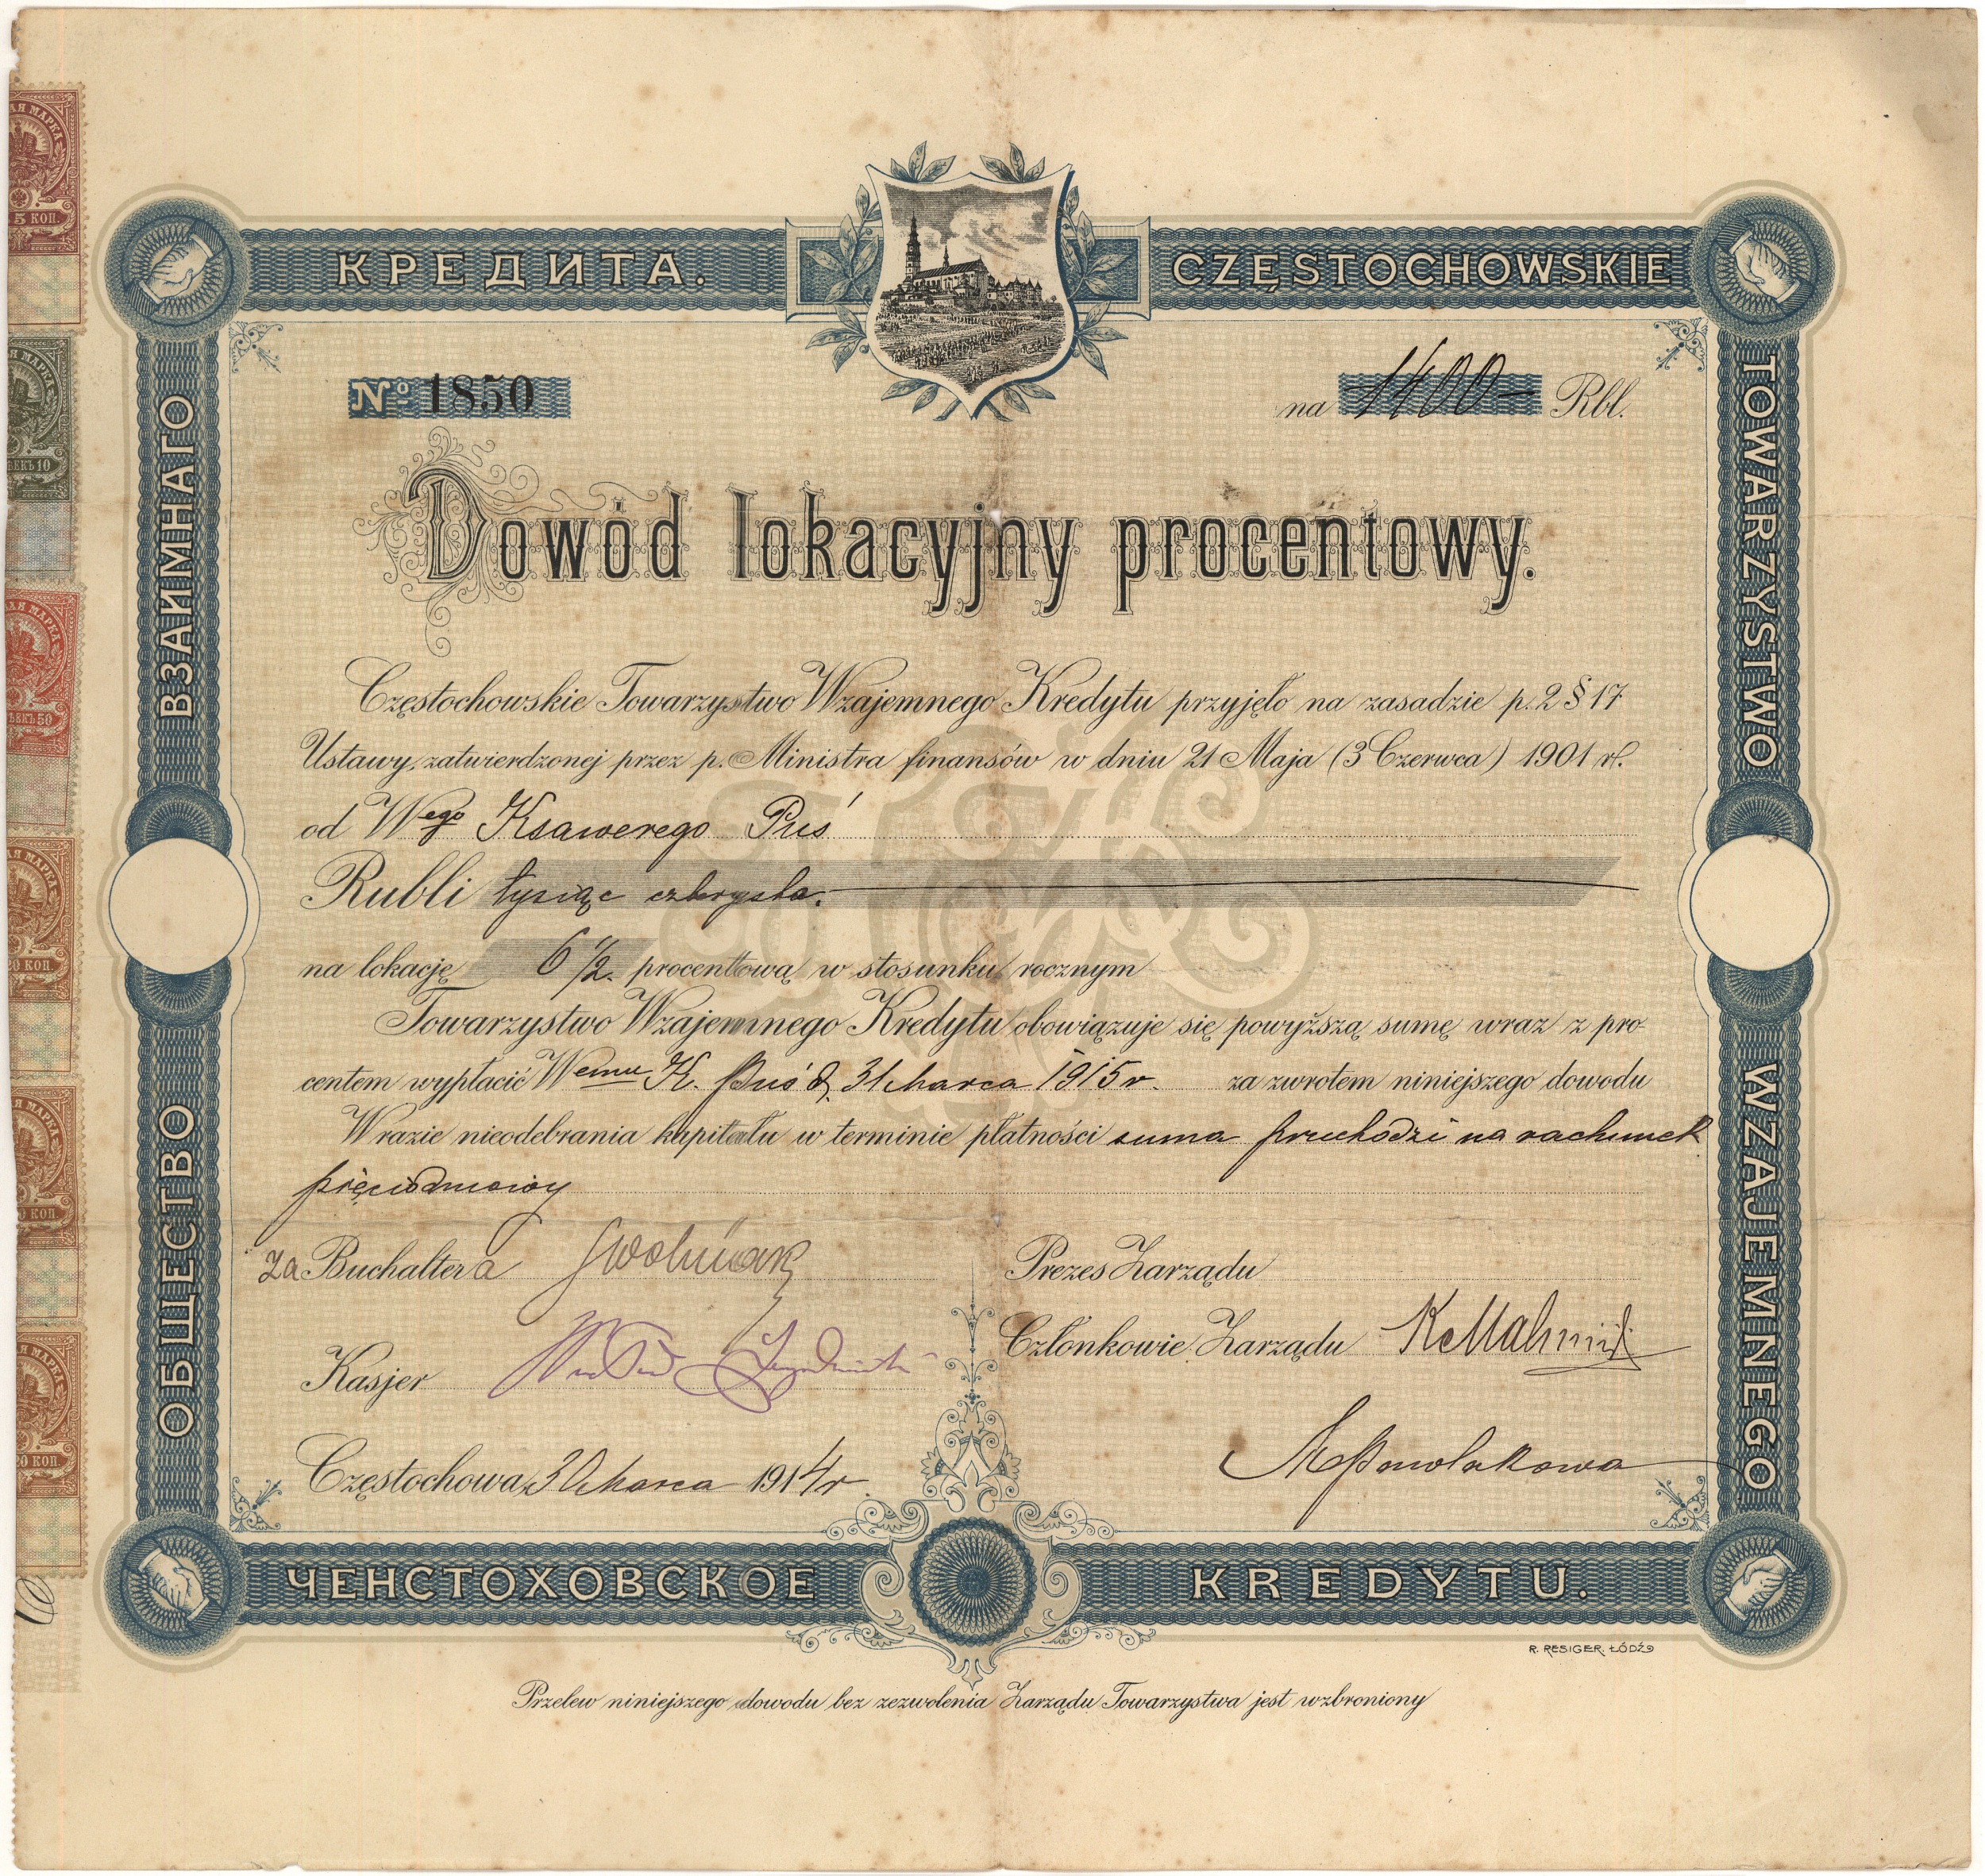 КРЕДИТА.
CZĘSTOCHOWSKIE
ВЗАИМНАГО
TOWARZYSTWO
ОБЩЕСТВО
WZAJEMNEGO
ЧЕНСТОХОВСКОЕ
KREDYTU.
№ 1850
na 1400- Rbl.
Dowód lokacyjny procentowy.
Częstochowskie Towarzystwo Wzajemnego Kredytu przyjęło na zasadzie p. 2 § 17
Ustawy, zatwierdzonej przez p. Ministra finansów w dniu 21 Maja (3 Czerwca) 1901 r.
od Wego Ksawerego Puś
Rubli tysiąc czterysta.
na lokację 6 1/2 procentową w stosunku rocznym
Towarzystwo Wzajemnego Kredytu obowiązuje się powyższą sumę wraz z pro-
centem wypłacić Wemu K. Puś d. 31 Marca 1915 r. za zwrotem niniejszego dowodu
W razie nieodebrania kapitału w terminie płatności suma przechodzi na rachunek
pięciodniowy
za Buchaltera
Prezes Zarządu
Członkowie Zarządu
Kasjer
Częstochowa, 31 Marca 1914 r.
R. RESIGER, ŁÓDŹ
Przelew niniejszego dowodu bez zezwolenia Zarządu Towarzystwa jest wzbroniony
АЯ МАРКА
5 КОП.
АЯ МАРКА
ѢЕКЪ 10
АЯ МАРКА
ѢЕКЪ 50
АЯ МАРКА
20 КОП.
АЯ МАРКА
0 КОП.
АЯ МАРКА
20 КОП.